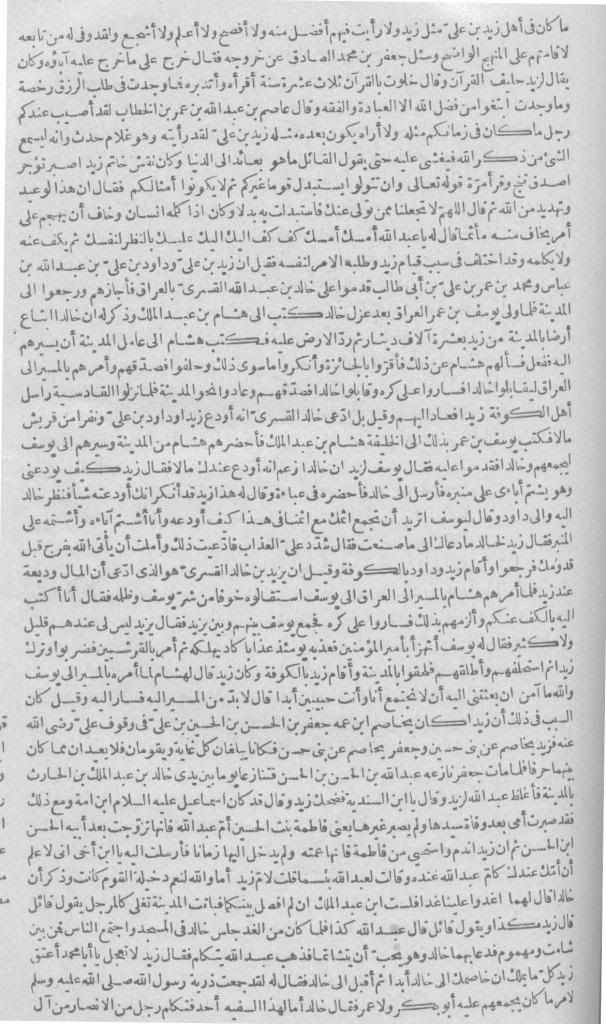 ما كان فى أهل زيد بن على مثل زيد ولا رأيت فيهم أفضل منه ولا أفصح ولا أعلم ولا أشجع ولقد وفى له من تابعه
لاقامتهم على المنهج الواضح وسئل جعفر بن محمد الصادق عن خروجه فقال خرج على ما خرج عليه آباؤه وكان
يقال لزيد حليف القرآن وقال خلوت بالقرآن ثلاث عشرة سنة أقرأه وأتدبره فما وجدت فى طلب الرزق رخصة
وما وجدت ابتغوا من فضل الله الا العبادة والفقه وقال عاصم بن عبد الله بن عمر بن الخطاب لقد أصيب عندكم
رجل ما كان فى زمانكم مثله ولا أراه يكون بعده مثله زيد بن على لقد رأيته وهو غلام حدث وانه ليسمع
الشئ من ذكر الله فيغشى عليه حتى يقول القائل ما هو بعائد الى الدنيا وكان نقش خاتم زيد اصبر تؤجر
اصدق تنج وقرأ مرة قوله تعالى وان تتولوا يستبدل قوما غيركم ثم لا يكونوا أمثالكم فقال ان هذا لوعيد
وتهديد من الله ثم قال اللهم لا تجعلنا ممن تولى عنك فاستبدلت به بدلا وكان اذا كلمه انسان وخاف أن يهجم على
أمر يخاف منه مأثما قال له يا عبد الله أمسك أمسك كف كف اليك اليك عليك بالنظر لنفسك ثم يكف عنه
ولا يكلمه وقد اختلف فى سبب قيام زيد وطلبه الامر لنفسه فقيل ان زيد بن على وداود بن على بن عبد الله بن
عباس ومحمد بن عمر بن على بن أبى طالب قدموا على خالد بن عبد الله القسرى بالعراق فأجازهم ورجعوا الى
المدينة فلما ولى يوسف بن عمر العراق بعد عزل خالد كتب الى هشام بن عبد الملك وذكر له ان خالدا ابتاع
أرضا بالمدينة من زيد بعشرة آلاف دينار ثم رد الارض عليه فكتب هشام الى عامل المدينة أن يسيرهم
اليه ففعل فسألهم هشام عن ذلك فأقروا بالجائزة وأنكروا ما سوى ذلك وحلفوا فصدقهم وأمرهم بالمسير الى
العراق ليقابلوا خالدا فساروا على كره وقابلوا خالدا فصدقهم وعادوا نحو المدينة فلما نزلوا القادسية راسل
أهل الكوفة زيدا فعاد اليهم وقيل بل ادعى خالد القسرى انه أودع زيدا وداود بن على ونفرا من قريش
مالا فكتب يوسف بن عمر بذلك الى الخليفة هشام بن عبد الملك فأحضرهم هشام من المدينة وسيرهم الى يوسف
ليجمعهم وخالدا فقدموا عليه فقال يوسف لزيد ان خالدا زعم انه أودع عندك مالا فقال زيد كيف يودعنى
وهو يشتم آباءى على منبره فأرسل الى خالد فأحضره فى عباءة وقال له هذا زيد قد أنكر انك أودعته شيأ فنظر خالد
اليه والى داود وقال ليوسف أتريد أن تجمع مع اثمك مع اثمنا فى هذا كيف أودعه وأنا أشتم آباءه وأشتمه على
المنبر فقال زيد لخالد ما دعاك الى ما صنعت فقال شدد على العذاب فادعيت ذلك وأملت أن يأتى الله بفرج قبل
قدومك فرجعوا وأقام زيد وداود بالكوفة وقيل ان يزيد بن خالد القسرى هو الذى ادعى أن المال وديعة
عند زيد فلما أمرهم هشام بالمسير الى العراق الى يوسف استقالوه خوفا من شر يوسف وظلمه فقال أنا أكتب
اليه بالكف عنكم وألزمهم بذلك فساروا على كره فجمع يوسف بينهم وبين يزيد فقال يزيد ليس لى عندهم قليل
ولا كثير فقال له يوسف أتهزأ بأمير المؤمنين فعذبه يومئذ عذابا كاد يهلكه ثم أمر بالقرشيين فضربوا وترك
زيدا ثم استحلفهم وأطلقهم فلحقوا بالمدينة وأقام زيد بالكوفة وكان زيد قال لهشام لما أمره بالمسير الى يوسف
والله ما آمن ان بعثتنى اليه أن لا نجتمع أنا وأنت حيين أبدا قال لا بد من المسير اليه فسار اليه وقيل كان
السبب فى ذلك أن زيدا كان يخاصم ابن عمه جعفر بن الحسن بن الحسين بن على فى وقوف على رضى الله
عنه فزيد يخاصم عن بنى حسين وجعفر يخاصم عن بنى حسن فكانا يبلغان كل غاية ويقومان فلا يعيدان مما كان
بينهما حرفا فلما مات جعفر نازعه عبد الله بن الحسن بن الحسن فتنازعا يوما بين يدى خالد بن عبد الملك بن الحارث
بالمدينة فأغلظ عبد الله لزيد وقال يا ابن السندية فضحك زيد وقال قد كان اسماعيل عليه السلام ابن امة ومع ذلك
فقد صبرت أمى بعد وفاة سيدها ولم يصبر غيرها يعنى فاطمة بنت الحسين أم عبد الله فانها تزوجت بعد أبيه الحسن
ابن الحسن ثم ان زيدا ندم واستحيى من فاطمة فانها عمته ولم يدخل اليها زمانا فأرسلت اليه يا ابن أخى انى لاعلم
أن أمك عندك كأم عبد الله عنده وقالت لعبد الله بئسما قلت لام زيد أما والله لنعم دخيلة القوم كانت وذكر أن
خالدا قال لهما اغدوا علينا غدا فلست ابن عبد الملك ان لم أفصل بينكما فباتت المدينة تغلى كالمرجل يقول قائل
قال زيد كذا ويقول قائل قال عبد الله كذا فلما كان من الغد جلس خالد فى المسجد واجتمع الناس فمن بين
شامت ومهموم فدعا بهما خالد وهو يحب أن يتشاتما فذهب عبد الله يتكلم فقال زيد لا تعجل يا أبا محمد أعتق
زيد كل ما يملك ان خاصمك الى خالد أبدا ثم أقبل الى خالد فقال له لقد جمعت ذرية رسول الله صلى الله عليه وسلم
لامر ما كان يجمعهم عليه أبو بكر ولا عمر فقال خالد أما لهذا السفيه أحد فتكلم رجل من الانصار من آل